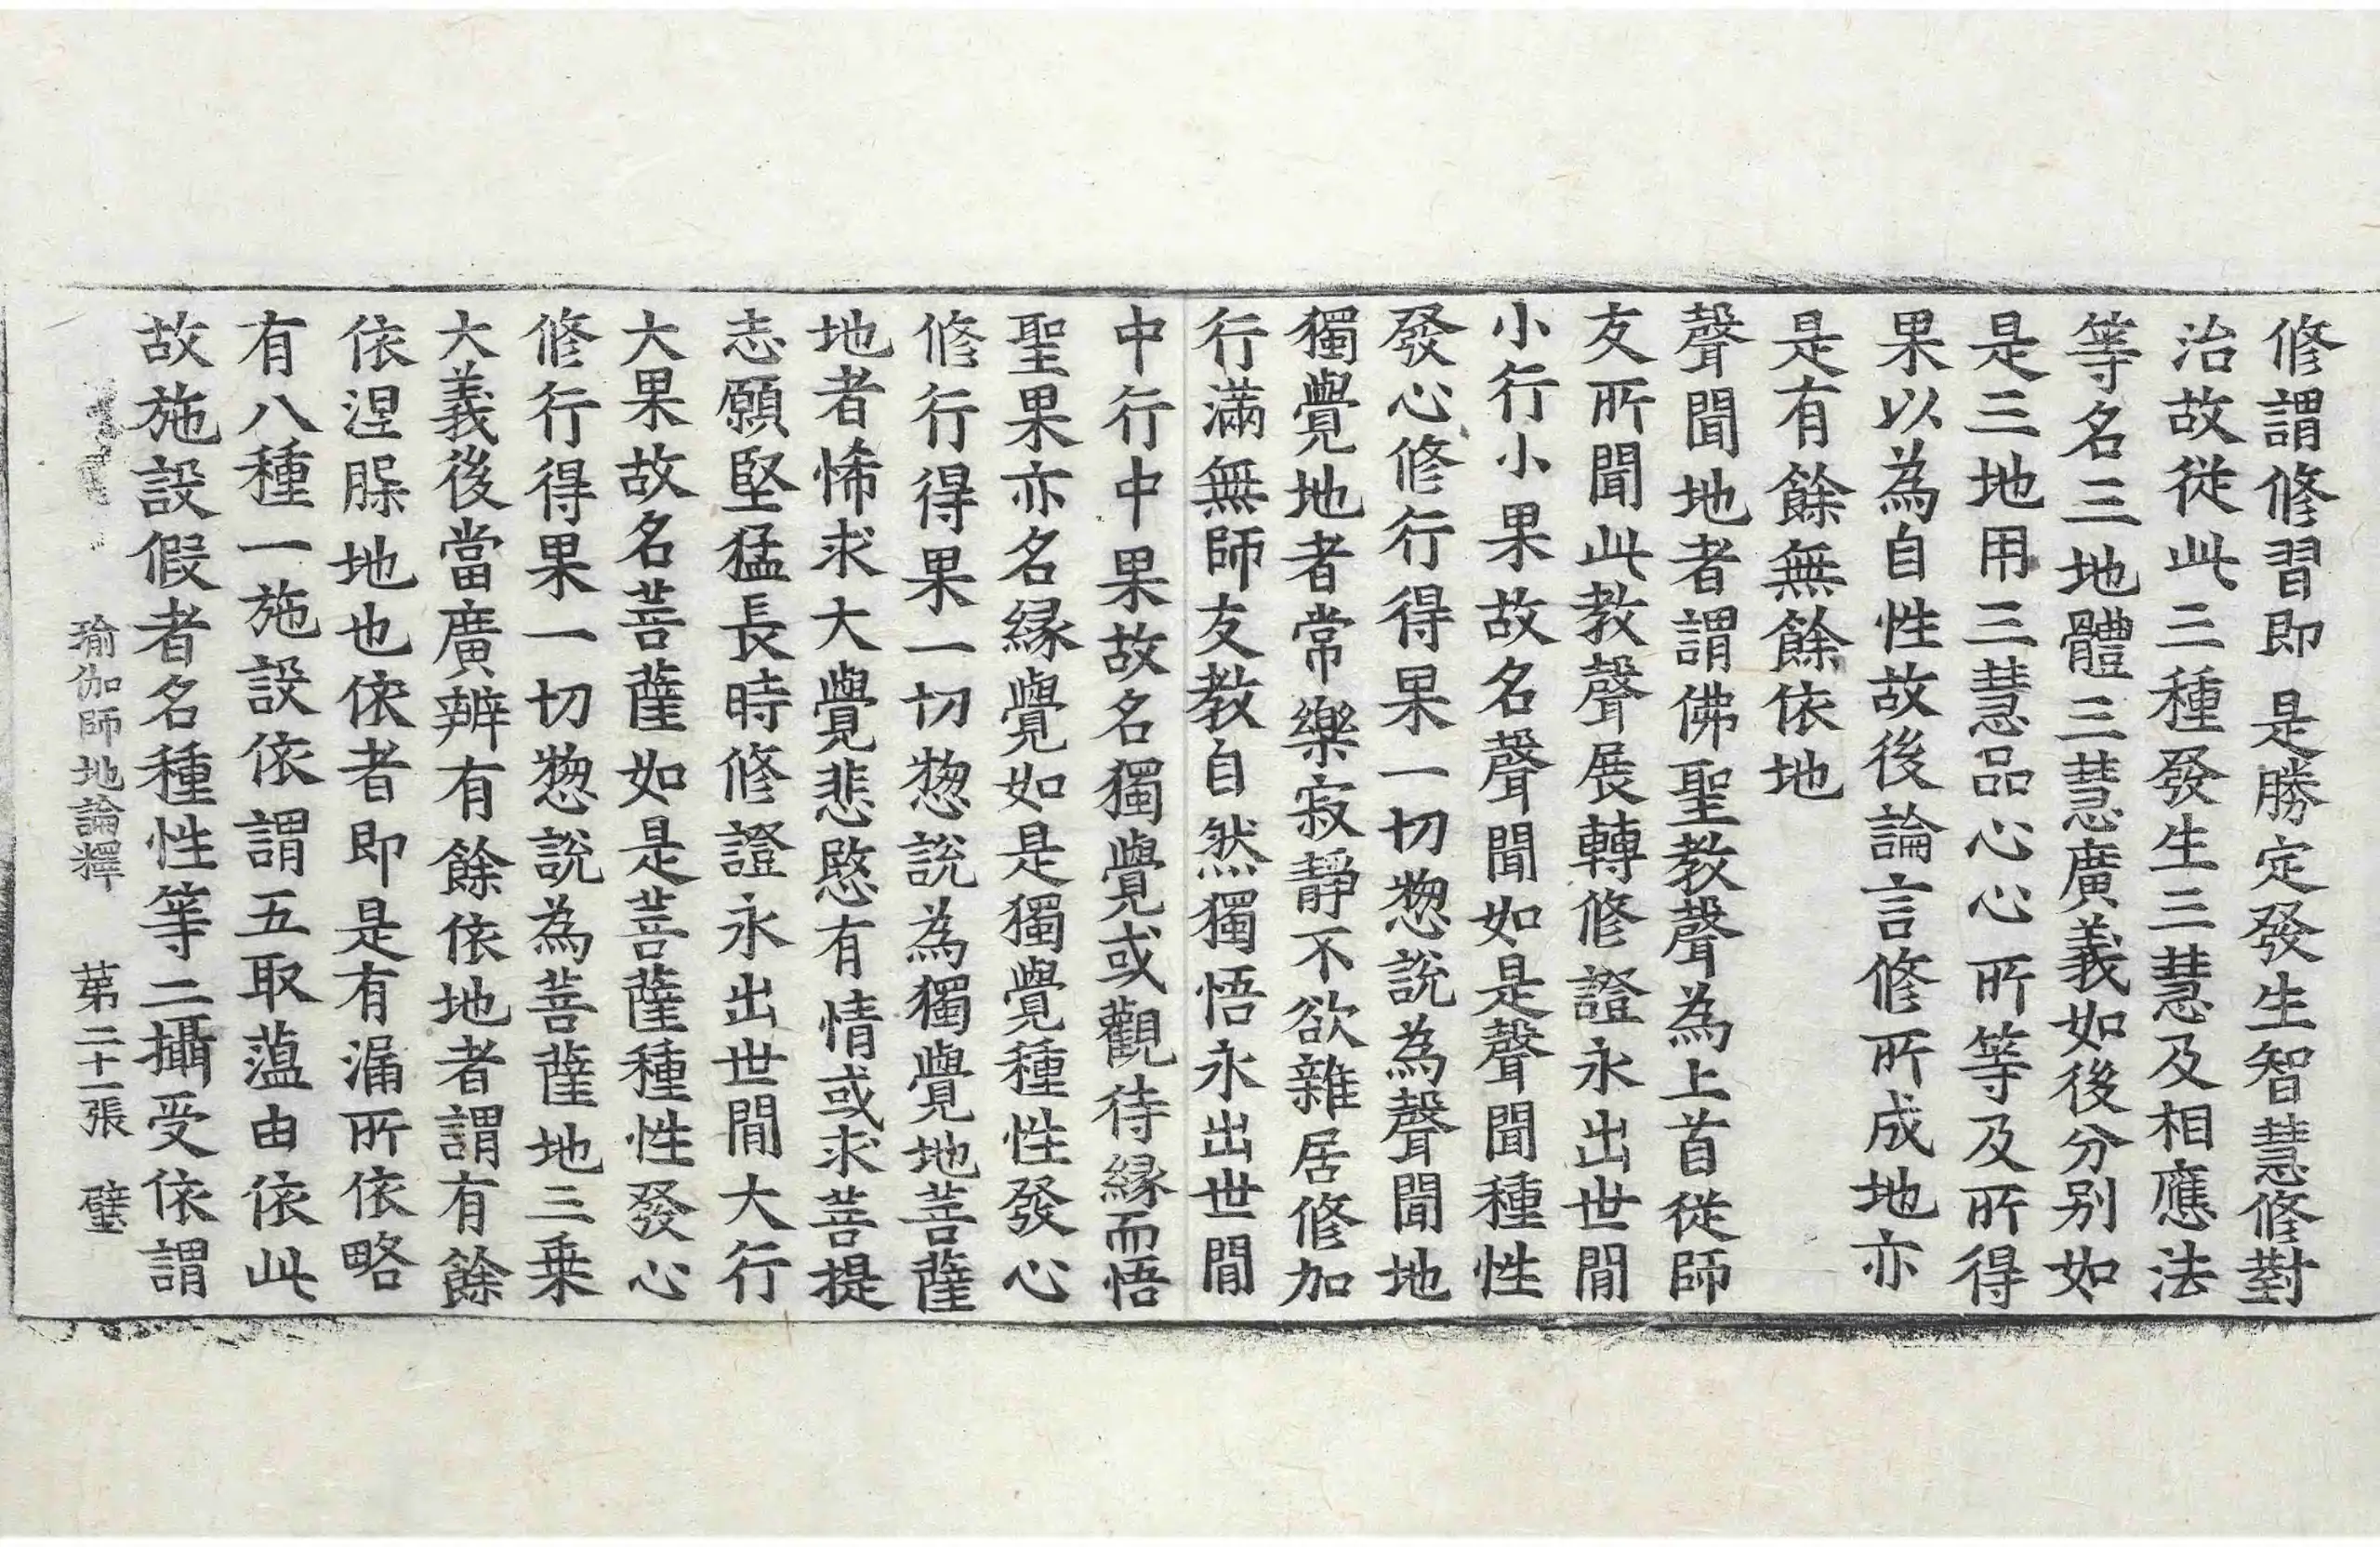 修謂修習即是勝定發生智慧修對
治故從此三種發生三慧及相應法
等名三地體三慧廣義如後分别如
是三地用三慧品心心所等及所得
果以為自性故後論言修所成地亦
是有餘無餘依地
聲聞地者謂佛聖教聲為上首從師
友所聞此教聲展轉修證永出世間
小行小果故名聲聞如是聲聞種性
發心修行得果一切惣說為聲聞地
獨覺地者常樂寂靜不欲雜居修加
行滿無師友教自然獨悟永出世間
中行中果故名獨覺或觀待縁而悟
聖果亦名縁覺如是獨覺種性發心
修行得果一切惣說為獨覺地菩薩
地者悕求大覺悲愍有情或求菩提
志願堅猛長時修證永出世間大行
大果故名菩薩如是菩薩種性發心
修行得果一切惣說為菩薩地三乗
大義後當廣辨有餘依地者謂有餘
依涅槃地也依者即是有漏所依略
有八種一施設依謂五取蕰由依此
故施設假者名種性等二攝受依謂
瑜伽師地論釋 第二十一張 璧